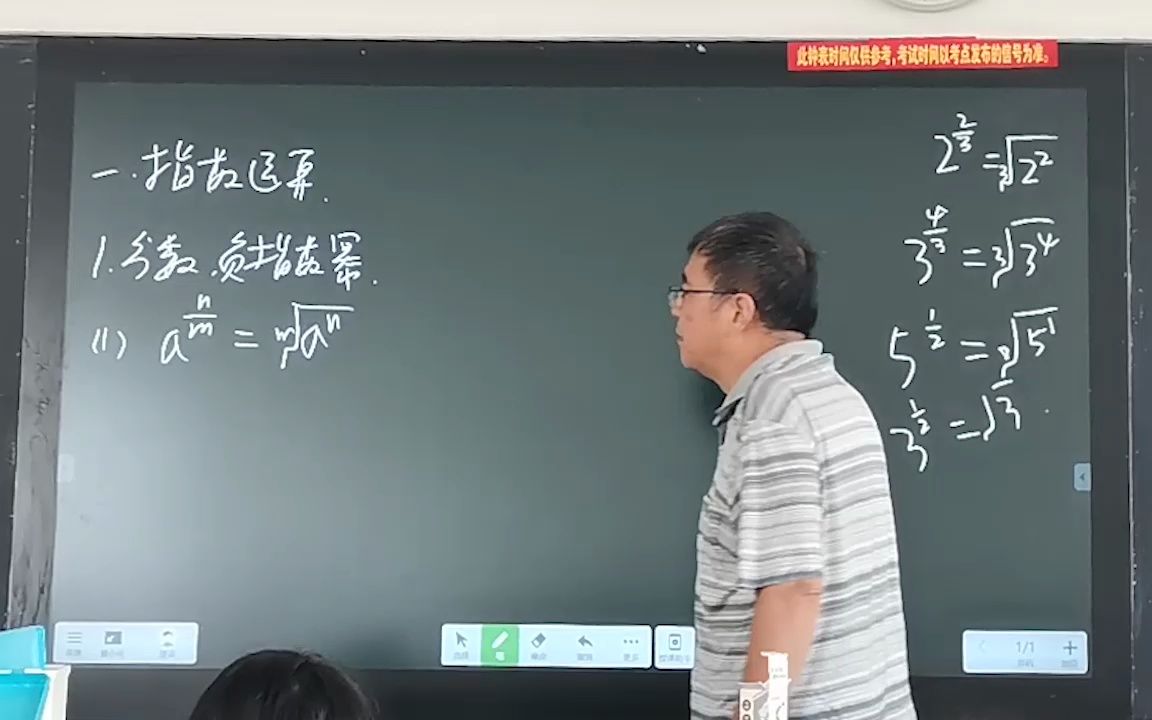 此钟表时间仅供参考,考试时间以考点发布的信号为准。
一.指数运算.
1.分数.负指数幂.
(1) a^{\frac{n}{m}} = \sqrt[m]{a^n}
2^{\frac{2}{3}} = \sqrt[3]{2^2}
3^{\frac{4}{3}} = \sqrt[3]{3^4}
5^{\frac{1}{2}} = \sqrt[2]{5^1}
3^{\frac{1}{2}} = \sqrt{3}.
笔
更多
1/1